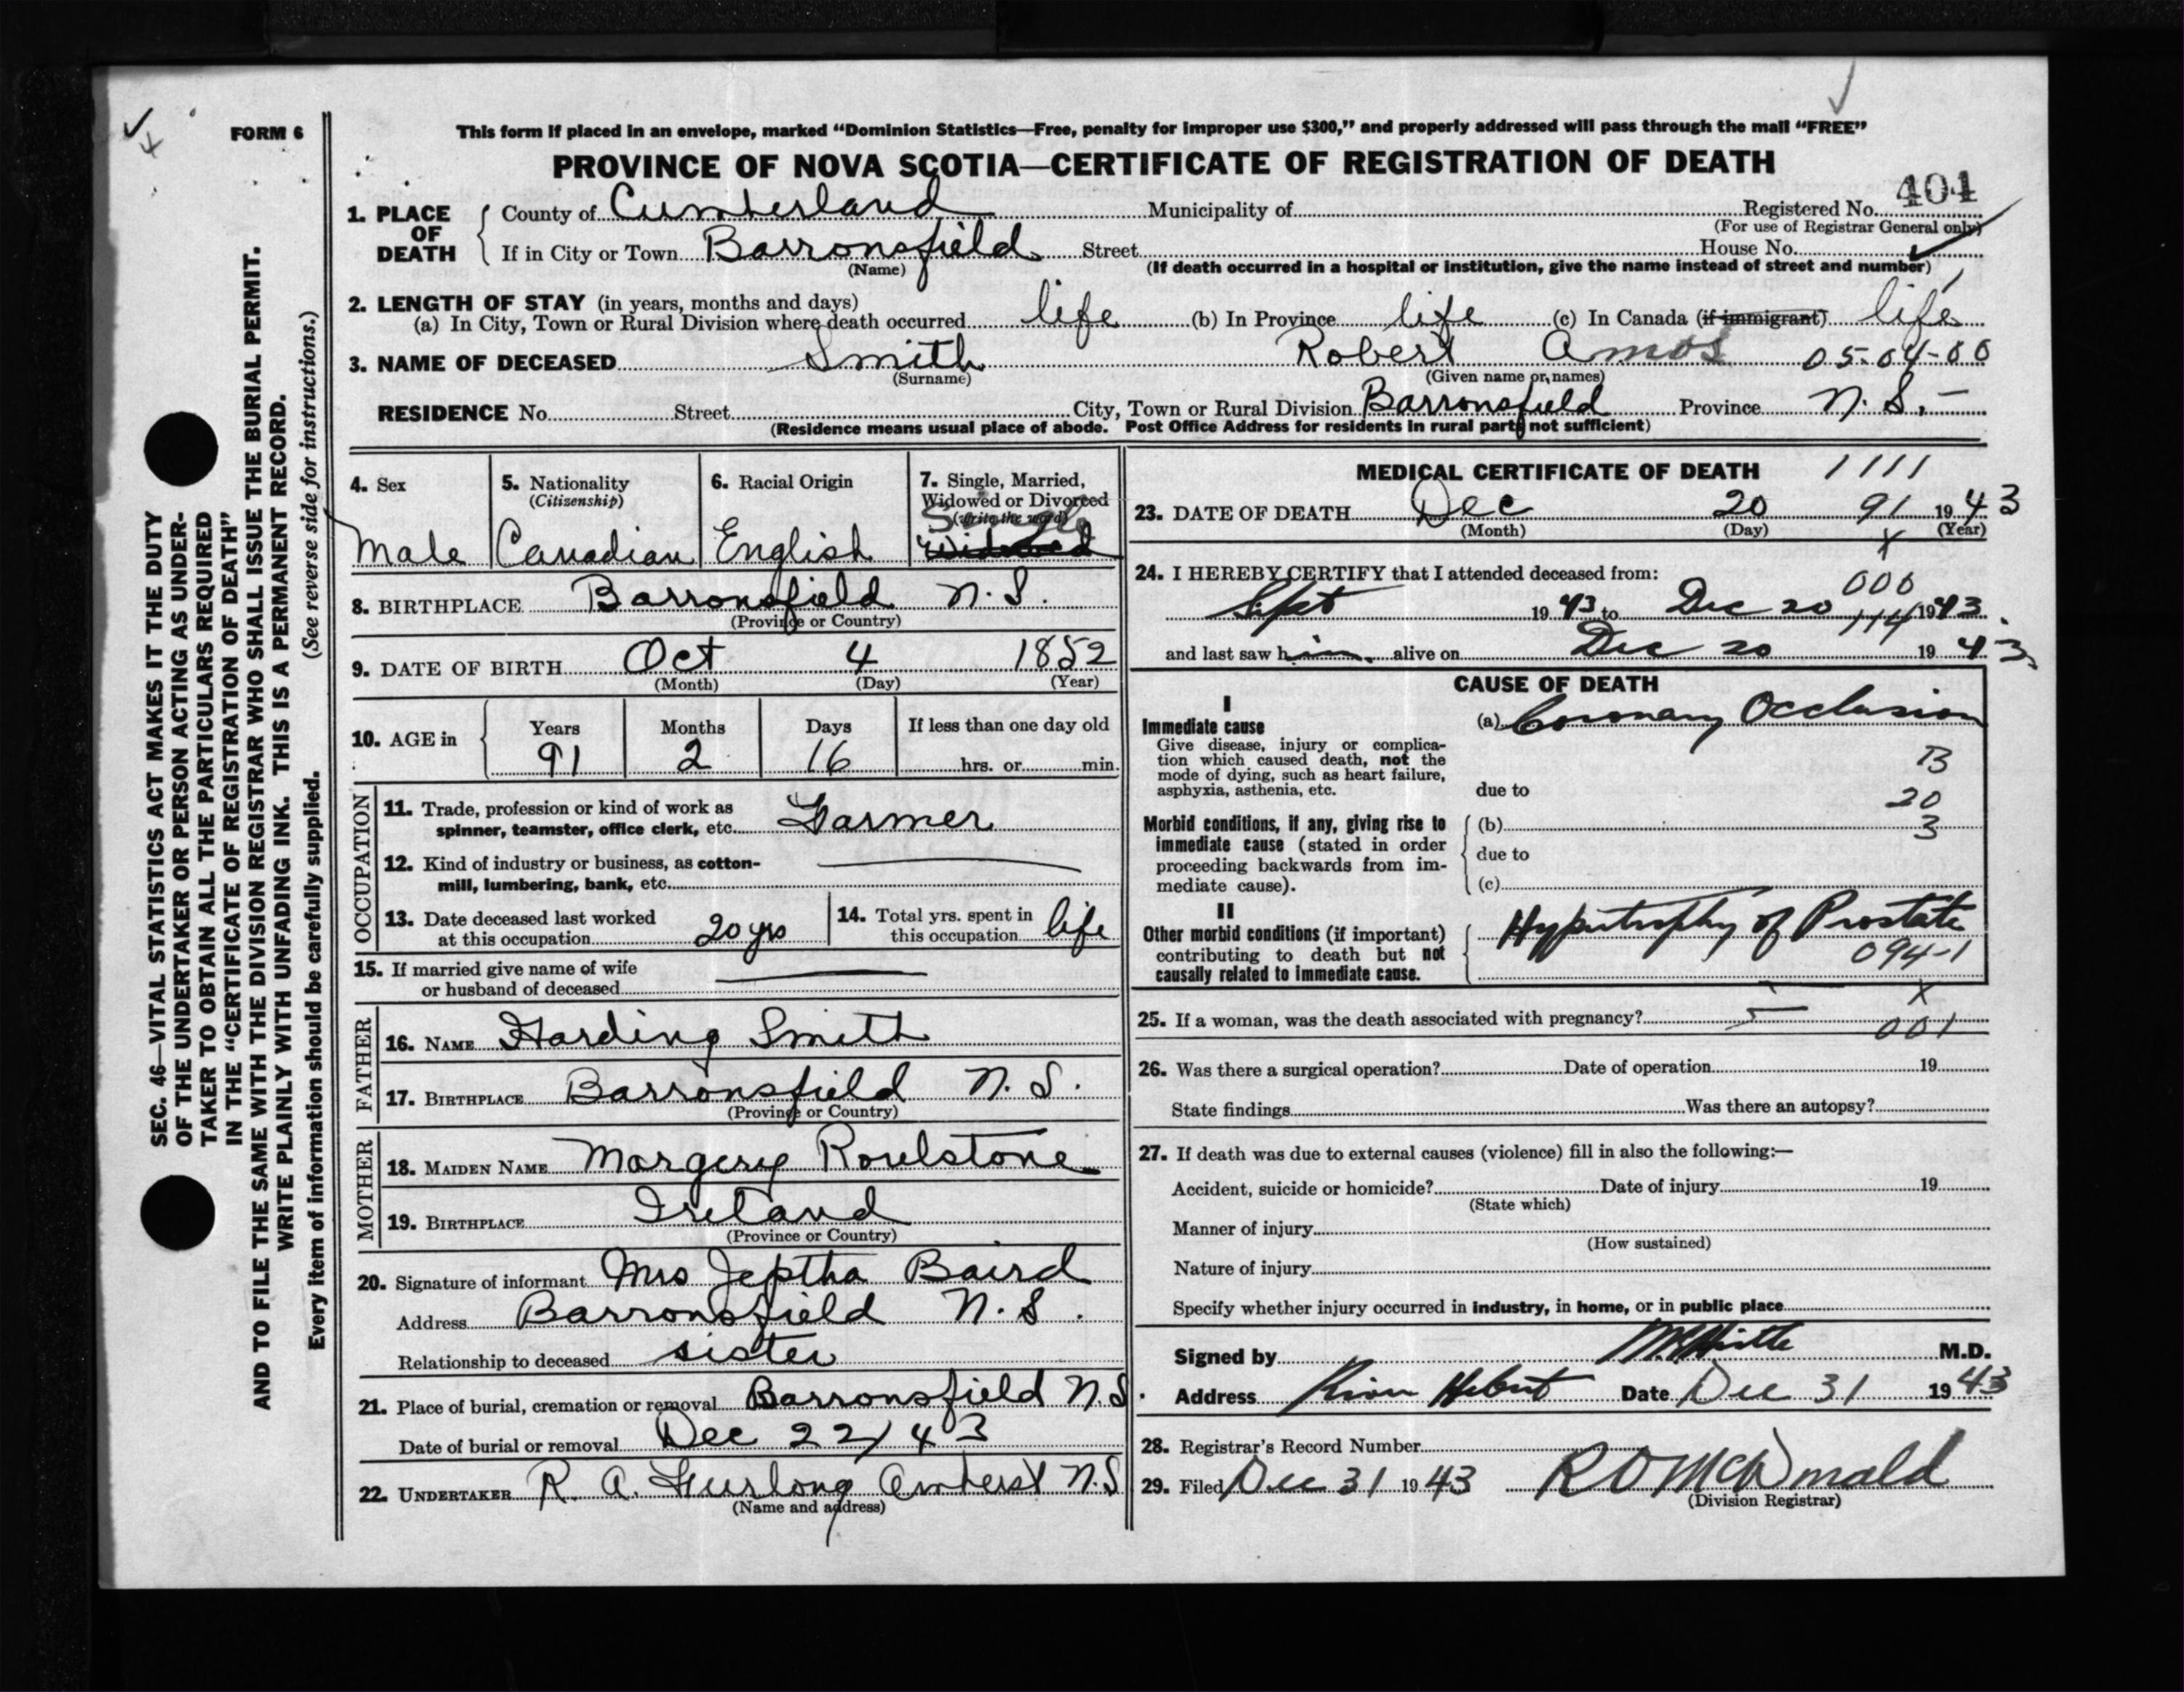 FORM 6
This form if placed in an envelope, marked "Dominion Statistics—Free, penalty for improper use $300," and properly addressed will pass through the mail "FREE"
PROVINCE OF NOVA SCOTIA—CERTIFICATE OF REGISTRATION OF DEATH
404
1. PLACE OF DEATH
County of Cumberland Municipality of Registered No.
(For use of Registrar General only)
If in City or Town Barronsfield Street House No.
(Name) (If death occurred in a hospital or institution, give the name instead of street and number)
2. LENGTH OF STAY (in years, months and days)
(a) In City, Town or Rural Division where death occurred life (b) In Province life (c) In Canada (if immigrant) life
3. NAME OF DECEASED Smith Robert Amos 05-04-00
(Surname) (Given name or names)
RESIDENCE No. Street City, Town or Rural Division Barronsfield Province N. S. –
(Residence means usual place of abode. Post Office Address for residents in rural parts not sufficient)
4. Sex
Male
5. Nationality
(Citizenship)
Canadian
6. Racial Origin
English
7. Single, Married,
Widowed or Divorced
(Write the word)
Single
Widowed
8. BIRTHPLACE Barronsfield N. S.
(Province or Country)
9. DATE OF BIRTH Oct 4 1852
(Month) (Day) (Year)
10. AGE in
Years Months Days If less than one day old
91 2 16 hrs. or min.
OCCUPATION
11. Trade, profession or kind of work as
spinner, teamster, office clerk, etc. Farmer
12. Kind of industry or business, as cotton-
mill, lumbering, bank, etc.
13. Date deceased last worked
at this occupation 20 yrs
14. Total yrs. spent in
this occupation life
15. If married give name of wife
or husband of deceased
FATHER
16. NAME Harding Smith
17. BIRTHPLACE Barronsfield N. S.
(Province or Country)
MOTHER
18. MAIDEN NAME Margery Roulstone
19. BIRTHPLACE Ireland
(Province or Country)
20. Signature of informant Mrs Jeptha Baird
Address Barronsfield N. S.
Relationship to deceased sister
21. Place of burial, cremation or removal Barronsfield N. S.
Date of burial or removal Dec 22/43
22. UNDERTAKER R. A. Furlong Amherst N. S
(Name and address)
MEDICAL CERTIFICATE OF DEATH 1111
23. DATE OF DEATH Dec 20 91 1943
(Month) (Day) (Year)
X
24. I HEREBY CERTIFY that I attended deceased from:
000
Sept 1943 to Dec 20 1943
114
and last saw him alive on Dec 20 1943
CAUSE OF DEATH
I
Immediate cause
Give disease, injury or complica-
tion which caused death, not the
mode of dying, such as heart failure,
asphyxia, asthenia, etc.
(a) Coronary Occlusion
B
due to
20
Morbid conditions, if any, giving rise to
immediate cause (stated in order
proceeding backwards from im-
mediate cause).
(b) 3
due to
(c)
II
Other morbid conditions (if important)
contributing to death but not
causally related to immediate cause.
Hypertrophy of Prostate
094-1
X
25. If a woman, was the death associated with pregnancy?
001
26. Was there a surgical operation? Date of operation 19
State findings Was there an autopsy?
27. If death was due to external causes (violence) fill in also the following:—
Accident, suicide or homicide? Date of injury 19
(State which)
Manner of injury
(How sustained)
Nature of injury
Specify whether injury occurred in industry, in home, or in public place
Signed by M.D.
Address River Hebert Date Dec 31 1943
28. Registrar's Record Number
29. Filed Dec 31 1943 R O McDonald
(Division Registrar)
SEC. 46—VITAL STATISTICS ACT MAKES IT THE DUTY
OF THE UNDERTAKER OR PERSON ACTING AS UNDER-
TAKER TO OBTAIN ALL THE PARTICULARS REQUIRED
IN THE "CERTIFICATE OF REGISTRATION OF DEATH"
AND TO FILE THE SAME WITH THE DIVISION REGISTRAR WHO SHALL ISSUE THE BURIAL PERMIT.
WRITE PLAINLY WITH UNFADING INK. THIS IS A PERMANENT RECORD.
Every item of information should be carefully supplied. (See reverse side for instructions.)